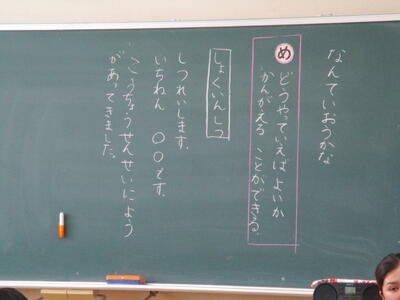 なんていおうかな
め
どうやっていえばよいか
かんがえることができる。
しょくいんしつ
しつれいします。
いちねん ○○です。
こうちょうせんせいによう
があってきました。